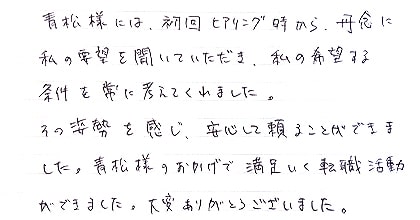 青松様には、初回ヒアリング時から、丹念に
私の要望を聞いていただき、私の希望する
条件を常に考えてくれました。
その姿勢を感じ、安心して頼ることができま
した。青松様のおかげで満足いく転職活動
ができました。大変ありがとうございました。